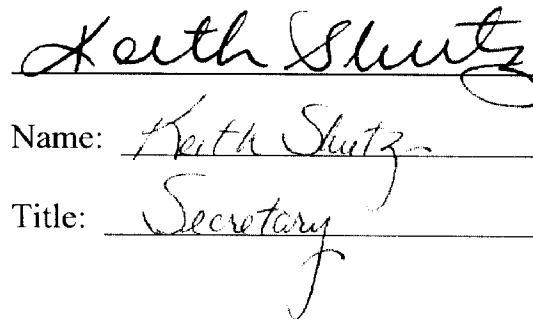 Keith Shutz
Name: Keith Shutz
Title: Secretary